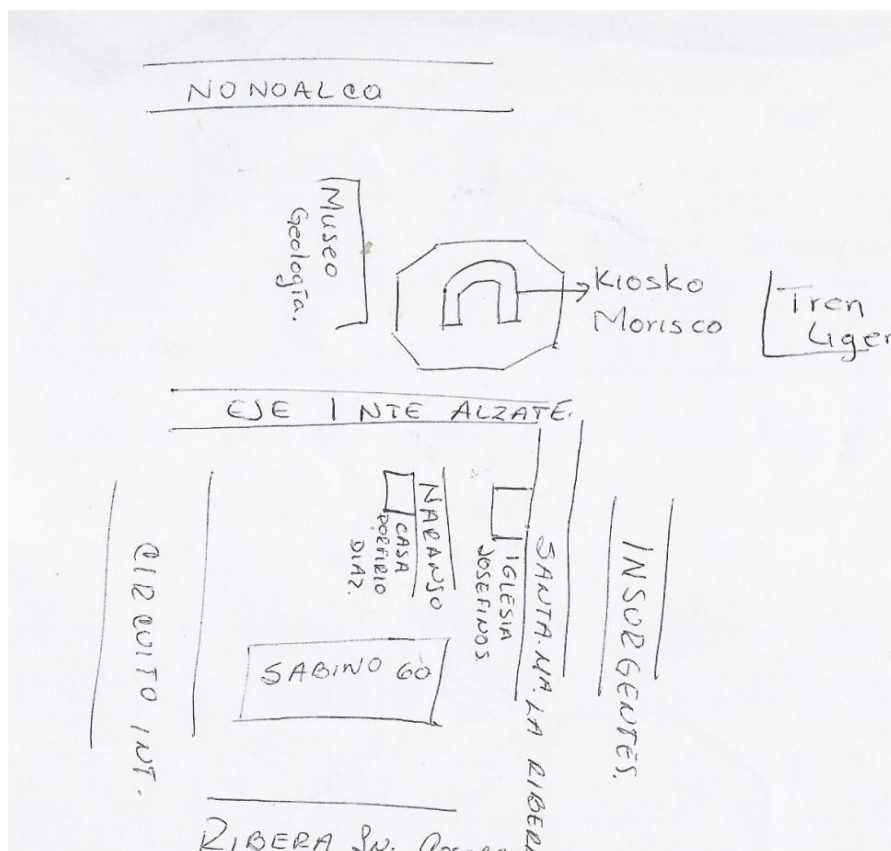 NONOALCO
Museo
Geología.
Kiosko
Morisco
Tren
Liger
EJE 1 NTE ALZATE.
CIRCUITO INT.
CASA
PORFIRIO
DIAZ.
NARANJO
IGLESIA
JOSEFINOS
SANTA. MA. LA RIBER
INSURGENTES.
SABINO 60
RIBERA SN.